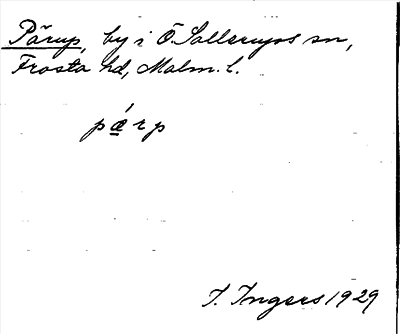 Pärup, by i Ö. Sallerups sn,
Frosta hd, Malm. l.
pǽrp
I. Ingers 1929